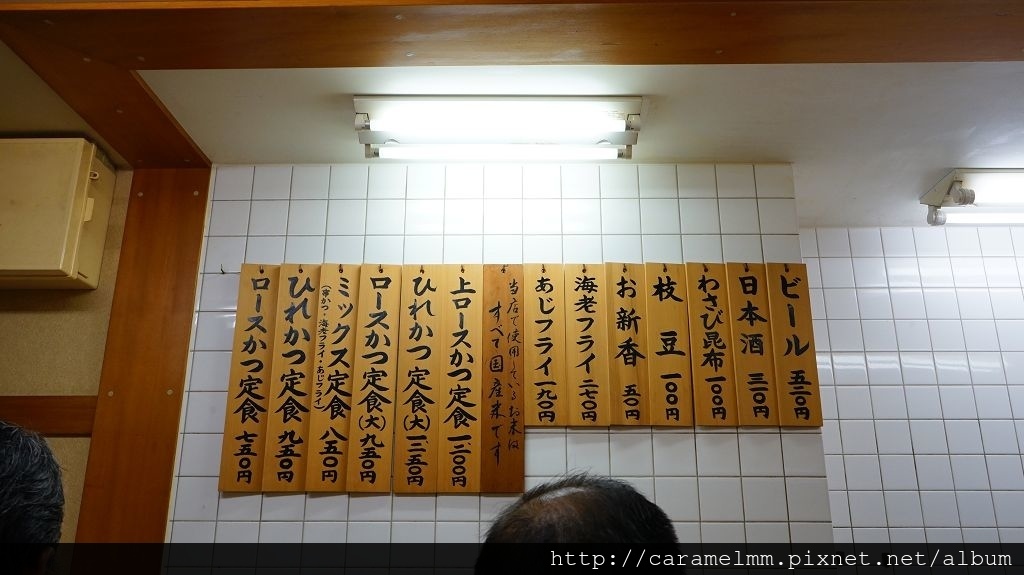 ビール 五二〇円
日本酒 三一〇円
わさび昆布 一〇〇円
枝豆 一〇〇円
お新香 五〇円
海老フライ 二七〇円
あじフライ 一九〇円
当店で使用しているお米は
すべて国産米です
上ロースかつ定食 一二〇〇円
ひれかつ定食(大) 一二五〇円
ロースかつ定食(大) 九五〇円
ミックス定食 八五〇円
(串かつ・海老フライ・あじフライ)
ひれかつ定食 九五〇円
ロースかつ定食 七五〇円
http://caramelmm.pixnet.net/album